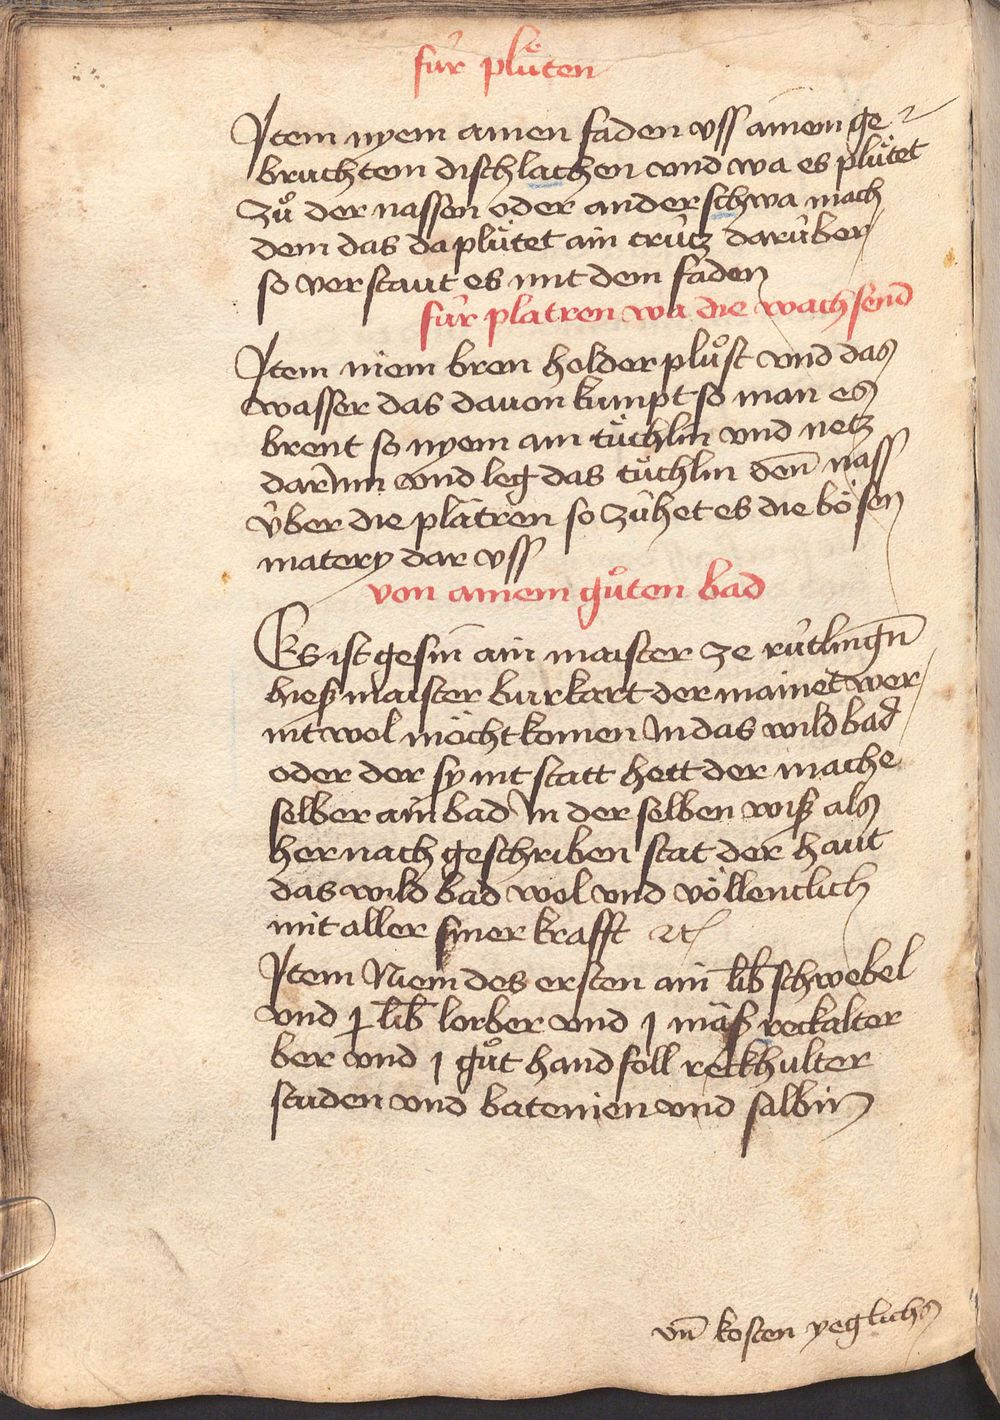 für plůten
Item nyem ainen faden vss ainem ge
bruchtem dischlachen vnd wa es plůtet
zů der nassen oder anderschwa mach
dem das da plůtet ain crütz darüber
so verstaut es mit dem faden
für platren wa die wachsend
Item niem bren holder plůst vnd das
wasser das dauon kumpt so man es
brent so nyem ain tůchlin vnd netz
darinn vnd leg das tůchlin deñ nass
über die platren so zühet es die bösen
matery dar vss
von ainem gůten bad
Es ist gesin ain maister ze rütlingn̄
hiesß maister burkart der mainet wer
nit wol möcht komen In das wildbad
oder der sy nit statt hett der mache
selber ain bad In der selben wiß als
hernach geschriben stat der haut
das wild bad wol vnd völlenclich
mit aller siner krafft ⁊c
Item Niem des ersten ain lib̄ schwebel
vnd j lib̄ lorber vnd j mäß reckalter
ber vnd j gůt hand foll reckhulter
studen vnd batenien vnd salbin
vn̄ kosten yeglichs